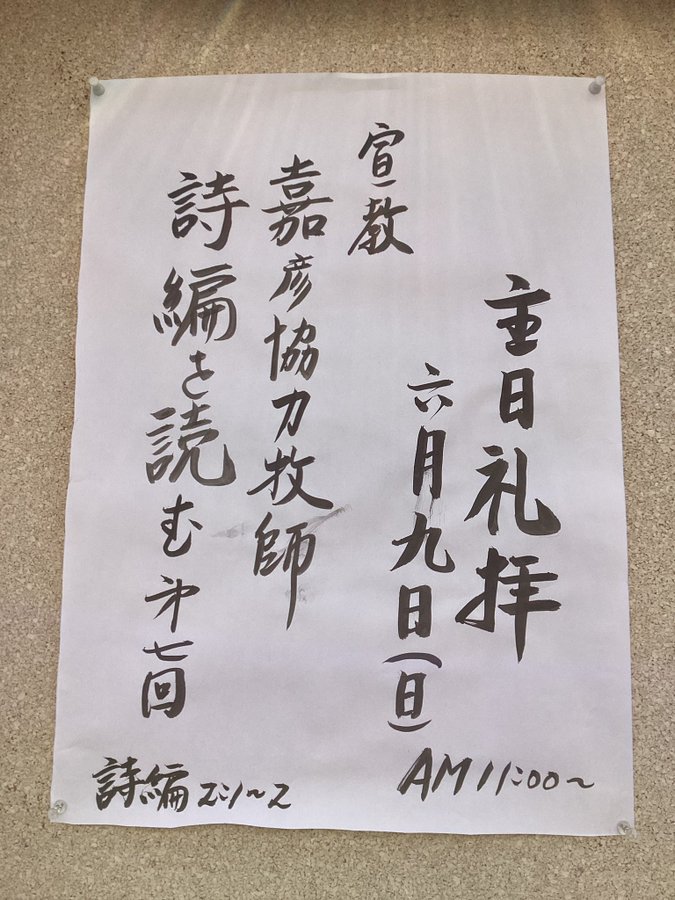 主日礼拝
六月九日(日)
AM 11:00~
宣教
嘉彦協力牧師
詩編を読む 第七回
詩編 2:1~2